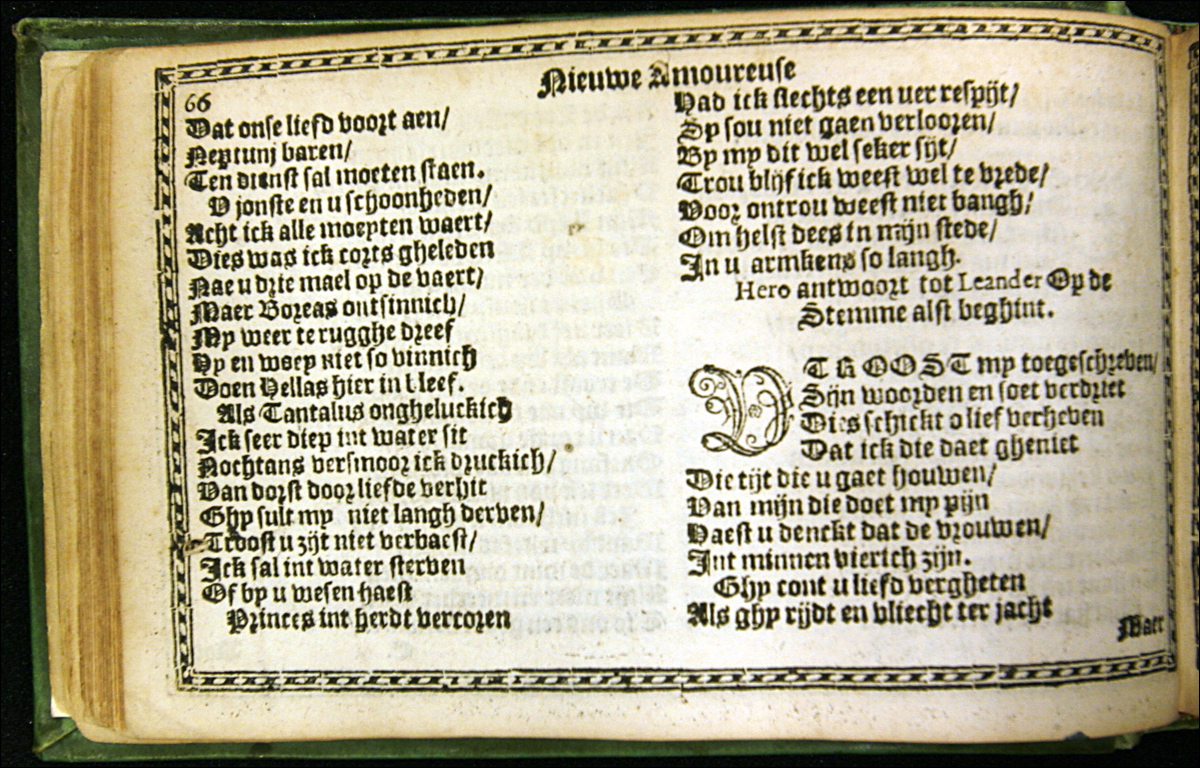 Nieuwe Amoureuse
66
Dat onse liefd voort aen/
Neptunj baren/
Ten dienst sal moeten staen.
V jonste en u schoonheden/
Acht ick alle moeyten waert/
Dies was ick corts gheleden
Nae u drie mael op de vaert/
Maer Boreas ontsinnich/
My weer te rugghe dreef
Hy en woey niet so vinnich
Doen Hellas hier in bleef.
Als Tantalus ongheluckich
Ick seer diep int water sit
Nochtans versmoor ick druckich/
Van dorst door liefde verhit
Ghy sult my niet langh derven/
Troost u zijt niet verbaest/
Ick sal int water sterven
Of by u wesen haest
Princes int herdt vercoren
Had ick slechts een uer respijt/
Sy sou niet gaen verlooren/
By my dit wel seker sijt/
Trou blijf ick weest wel te vrede/
Voor ontrou weest niet bangh/
Om helst dees in mijn stede/
In u armkens so langh.
Hero antwoort tot Leander Op de
Stemme alst beghint.
VTROOST my toegeschreven/
Sijn woorden en soet verdriet
Dies schickt o lief verheven
Dat ick die daet gheniet
Die tijt die u gaet houwen/
Van mijn die doet my pijn
Haest u denckt dat de vrouwen/
Int minnen vierich zijn.
Ghy cont u liefd vergheten
Als ghy rijdt en vliecht ter jacht
Maer